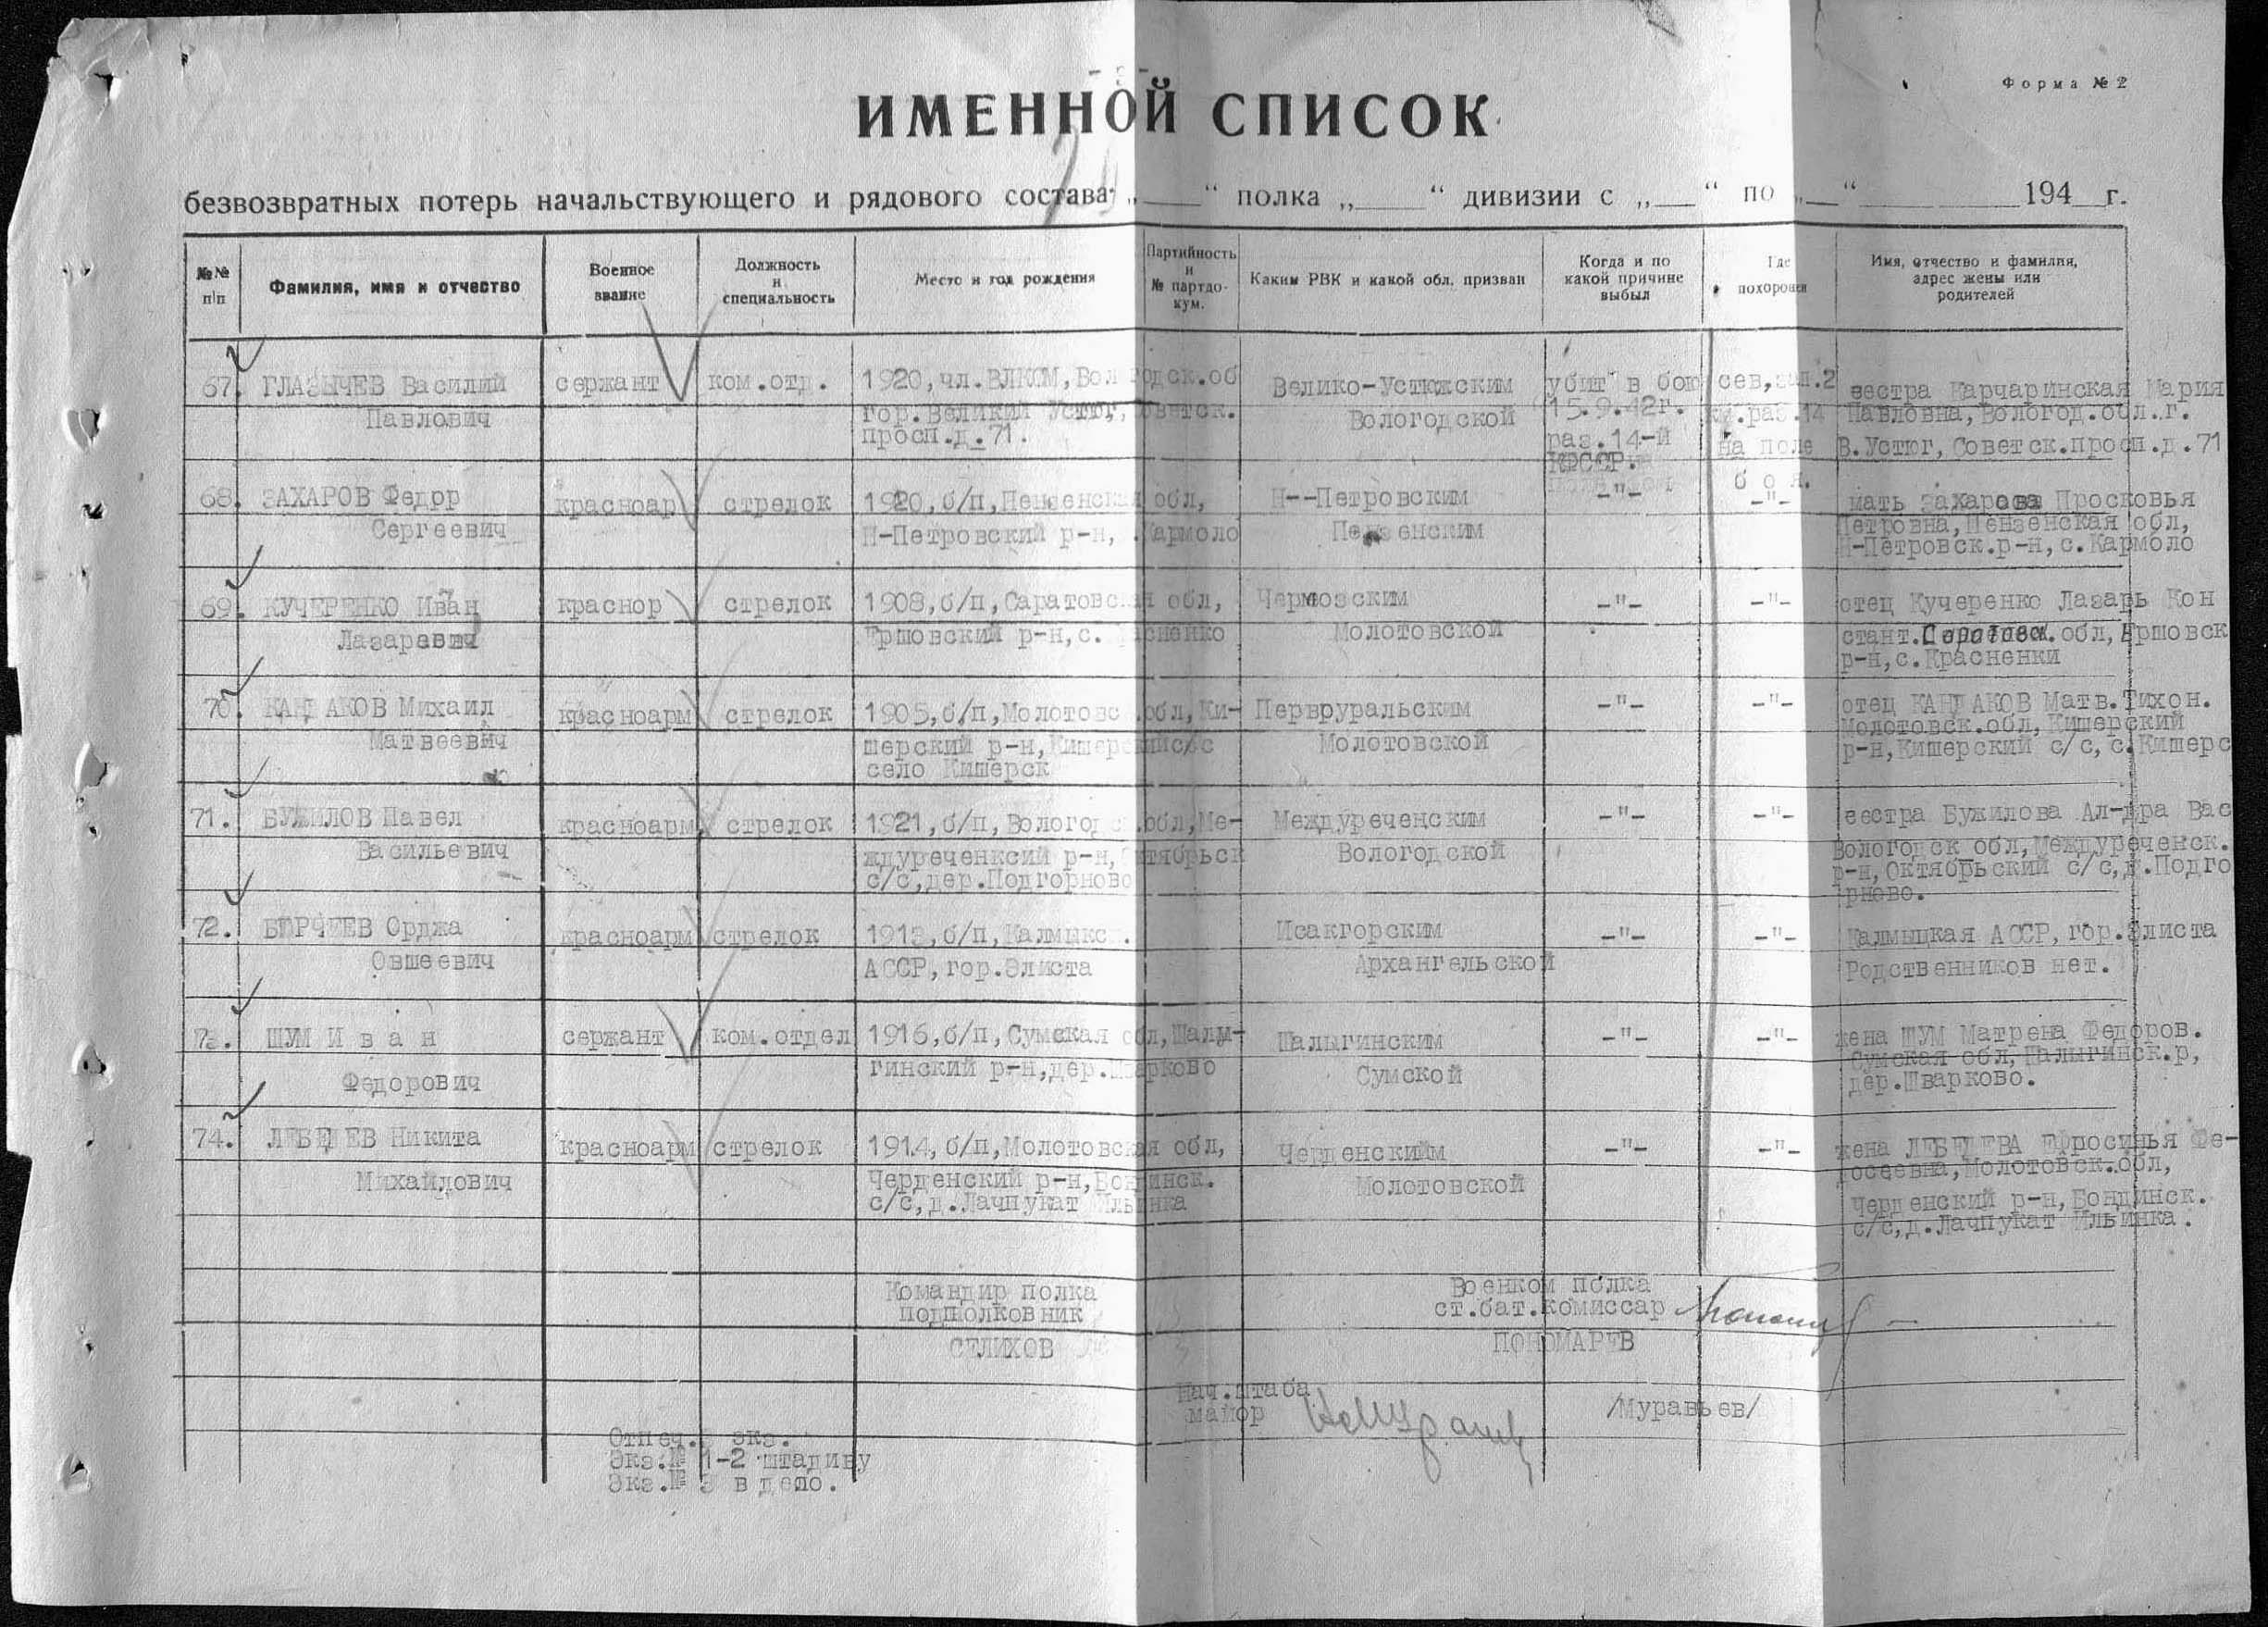 Форма №2
ИМЕННОЙ СПИСОК
безвозвратных потерь начальствующего и рядового состава „ “ полка „ “ дивизии с „ “ по „ “ 194 г.
№№ п/п
Фамилия, имя и отчество
Военное звание
Должность и специальность
Место и год рождения
Партийность и № партдокум.
Каким РВК и какой обл. призван
Когда и по какой причине выбыл
Где похоронен
Имя, отчество и фамилия, адрес жены или родителей
67. ГЛАЗЫЧЕВ Василий сержант ком.отд. 1920,чл.ВЛКСМ,Вологодск.об Велико-Устюжским убит в бою сев,зап.2 сестра Карчаринская Мария
Павлович гор.Великий Устюг, Советск. Вологодской 15.9.42г. км.раз.14 Павловна,Вологод.обл.г.
просп.д.71. раз.14-й на поле В.Устюг,Советск.просп.д.71
КФССР. боя.
68. ЗАХАРОВ Федор красноар стрелок 1920,б/п,Пензенская обл, Н--Петровским -"- -"- мать Захарова Просковья
Сергеевич Н-Петровский р-н, Кармоло Пензенским Петровна,Пензенская обл,
Н-Петровск.р-н,с.Кармоло
69. КУЧЕРЕНКО Иван краснор стрелок 1908,б/п,Саратовская обл, Чермозским -"- -"- отец Кучеренко Лазарь Кон
Лазаревич Ершовский р-н,с. Красненко Молотовской стант.Саратовск.обл,Ершовск
р-н,с.Красненки
70. КАНДАКОВ Михаил красноарм стрелок 1905,б/п,Молотовс.обл,Ки- Первруральским -"- -"- отец КАНДАКОВ Матв.Тихон.
Матвеевич шерский р-н,Кишерскийс/с Молотовской Молотовск.обл,Кишерский
село Кишерск р-н,Кишерский с/с,с.Кишерс
71. БУЖИЛОВ Павел красноарм стрелок 1921,б/п,Вологодс.обл,Ме- Междуреченским -"- -"- сестра Бужилова Ал-дра Вас
Васильевич ждуреченксий р-н,Октябрьск Вологодской Вологодск обл,Междуреченск.
с/с,дер.Подгорново р-н,Октябрьский с/с,д.Подго
рново.
72. БЕРЧЕЕВ Орджа красноарм стрелок 1913,б/п,Калмыкс. Исакгорским -"- -"- Калмыцкая АССР,гор.Элиста
Овшеевич АССР,гор.Элиста Архангельской Родственников нет.
73. ШУМ Иван сержант ком.отдел 1916,б/п,Сумская обл,Шалы- Шалыгинским -"- -"- жена ШУМ Матрена Федоров.
Федорович гинский р-н,дер.Шварково Сумской Сумская обл,Шалыгинск.р,
дер.Шварково.
74. ЛЕБЕДЕВ Никита красноарм стрелок 1914,б/п,Молотовская обл, Черденскийм -"- -"- жена ЛЕБЕДЕВА Ефросинья Фе-
Михайлович Черденский р-н,Бондинск. Молотовской досеевна,Молотовск.обл,
с/с,д.Лачпукат Ильинка Черденский р-н,Бондинск.
с/с,д.Лачпукат Ильинка.
Командир полка Военком полка
подполковник ст.бат.комиссар
СЕЛИХОВ ПОНОМАРЕВ
Нач.штаба
майор /Муравьев/
Отпеч. экз.
Экз.№ 1-2 штадиву
Экз.№ 3 в дело.